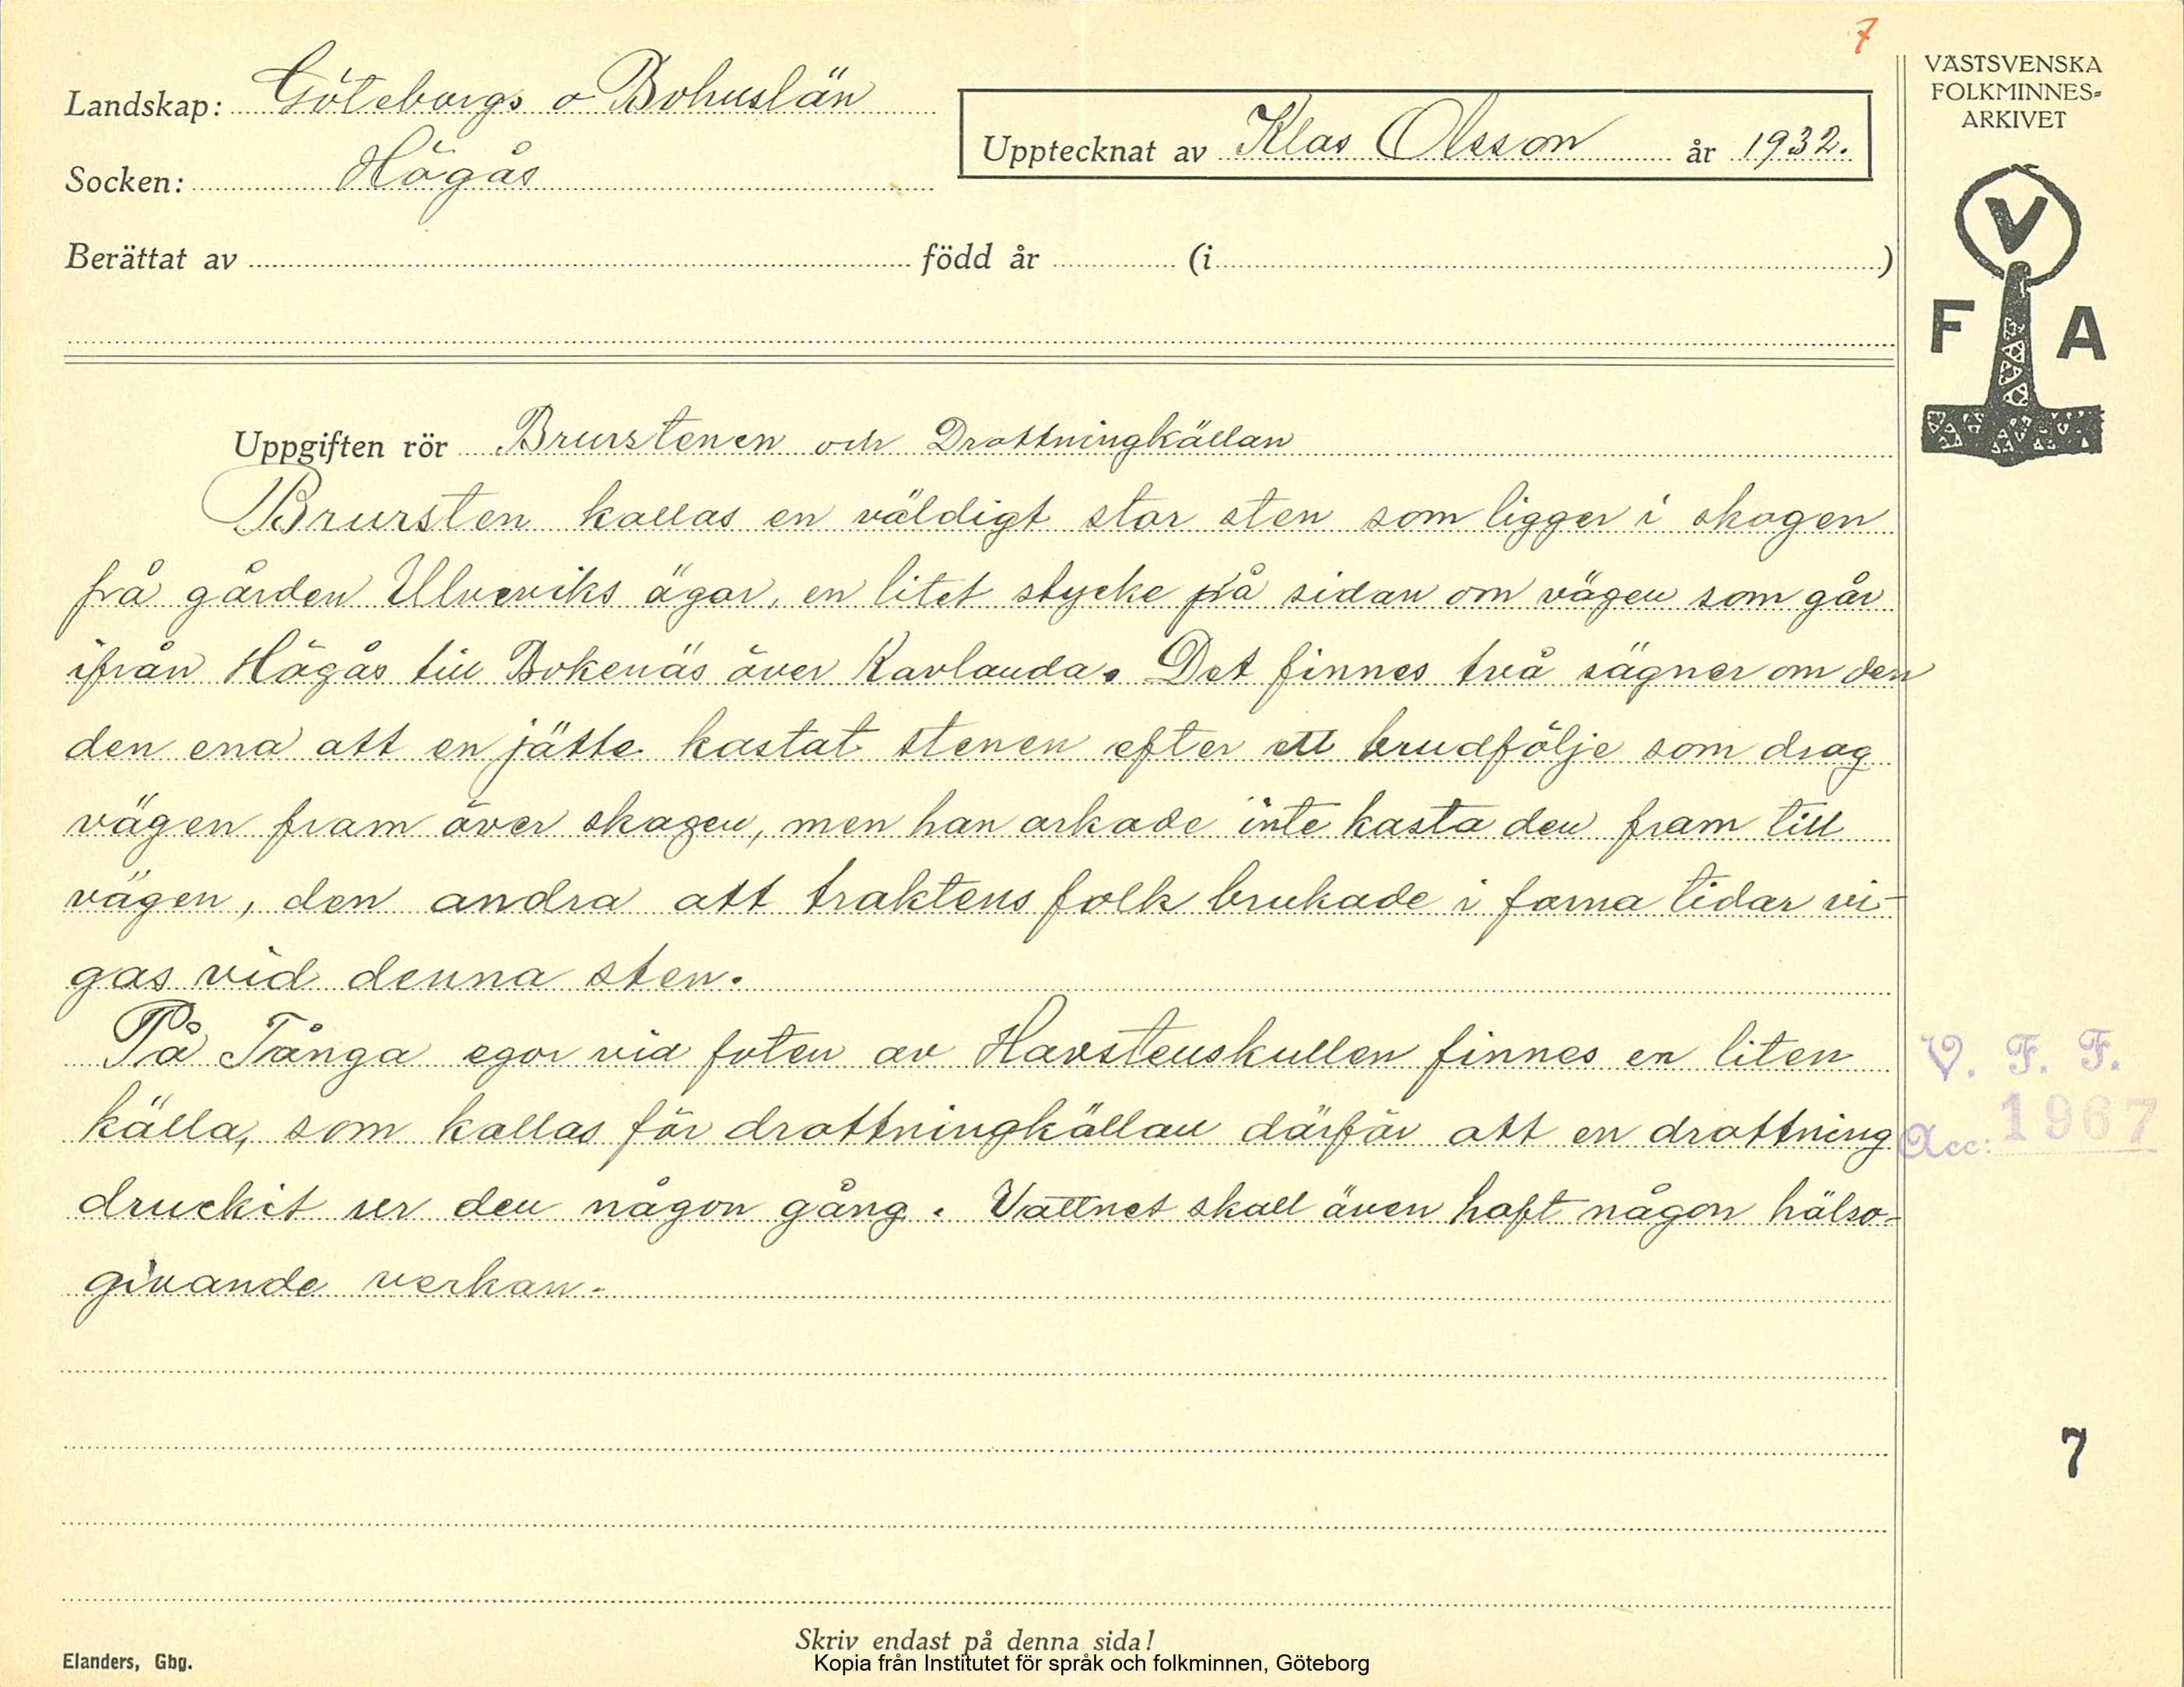 7
VÄSTSVENSKA
FOLKMINNES-
ARKIVET
Landskap: Göteborgs o Bohuslän
Upptecknat av Klas Olsson år 1932.
Socken: Högås
V
F A
Berättat av född år (i )
Uppgiften rör Brurstenen och Drottningkällan
Brursten kallas en väldigt stor sten som ligger i skogen
frå gården Ulveviks ägor, en litet stycke på sidan om vägen som går
ifrån Högås till Bokenäs över Kavlanda. Det finnes två sägner om den
den ena att en jätte kastat stenen efter ett brudfölje som drog
vägen fram över skogen, men han orkade inte kasta den fram till
vägen, den andra att traktens folk brukade i forna tidar vi-
gas vid denna sten.
På Tånga egor vid foten av Havstenskullen finnes en liten
källa, som kallas för drottningkällan därför att en drottning
druckit ur den någon gång. Vattnet skall även haft någon hälso-
givande verkan.
V. F. F.
Acc: 1967
7
Skriv endast på denna sida!
Elanders, Gbg.
Kopia från Institutet för språk och folkminnen, Göteborg